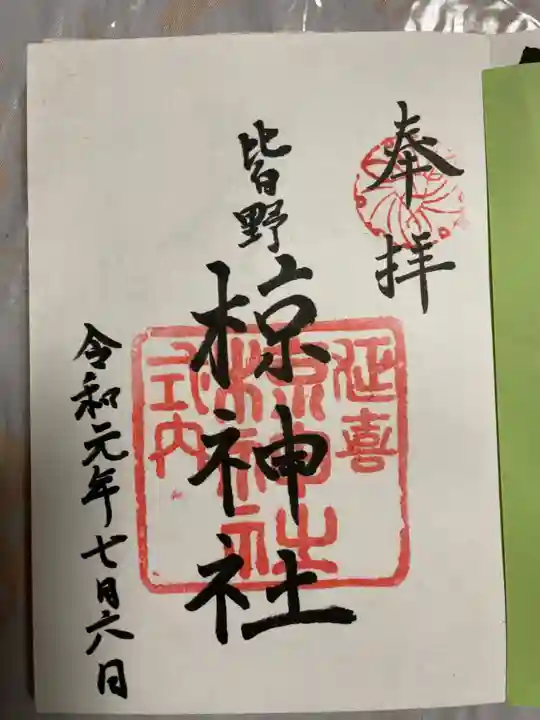 奉拝
延喜
皆野
椋神社
椋神社
式内
令和元年七月六日